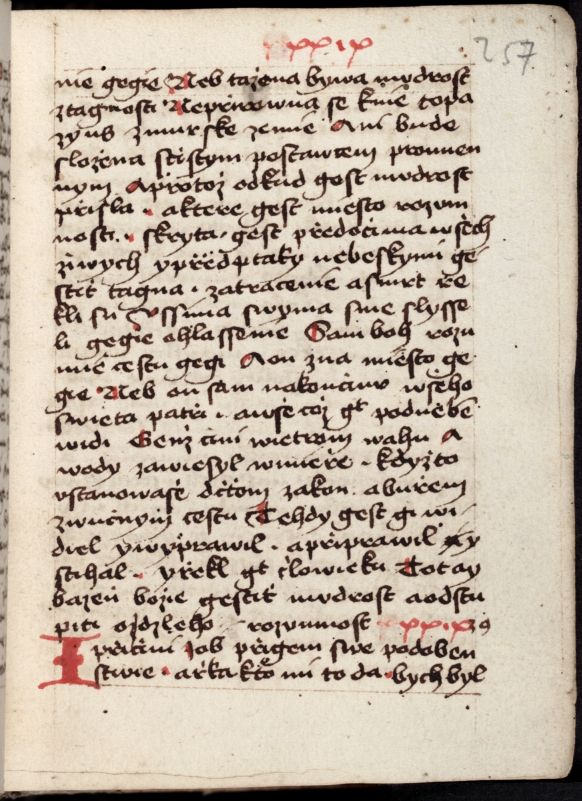 xxix 257
nie gegie Neb tazena bywa mudrost
ztagnosti Neprirowna se knie topa
zyus zmurske zemie Ani bude
slozena sčistym postawcem promien
nym Aprotoz odkud gest mudrost
prisla aktere gest miesto rozum
nosti skryta gest předočima wsiech
ziwych ypřed ptaky nebeskymi ge
stit tagna zatracenie asmrt re
kli su Ussima swyma sme slysse
li gegie ohlassenie Sam boh rozu
mie cestu gegi Aon zna miesto ge
gie Neb on sam nakončiny wseho
swieta patři awse coz gt podnebē
widi Genz cini wietrom wahu A
wody zawiesyl wmieře kdyzto
ustanowasse dčtom zakon abuřem
zwucnym cestu Tehdy gest gi wi
diel ywyprawil apřiprawil y
stihal yřekl gt člowieku Totay
bazen bozie gestit mudrost aodstu
piti ozdzleho rozumnost xxix
Ipričini Job přigem swe podoben
stwie ařka kto mi to da bych byl